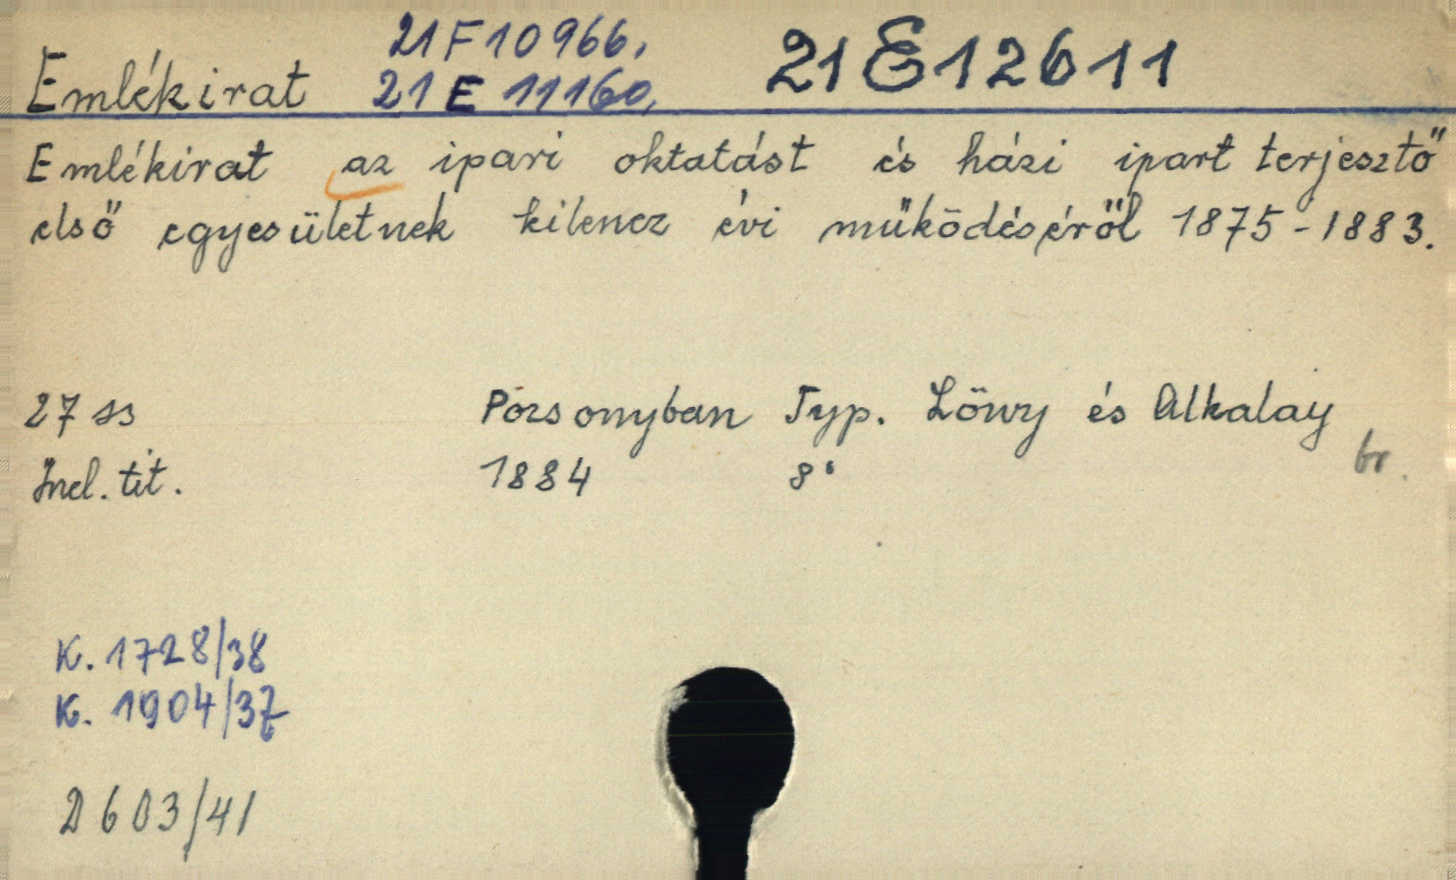 21 F 10966.
Emlékirat 21 E 11160. 21 E 12611
Emlékirat az ipari oktatást és házi ipart terjesztő
első egyesületnek kilencz évi működéséről 1875-1883.
27 ss Pozsonyban Typ. Löwy és Alkalay
Incl. tit. 1884 8° br.
K. 1728/38
K. 1904/37
D 603/41